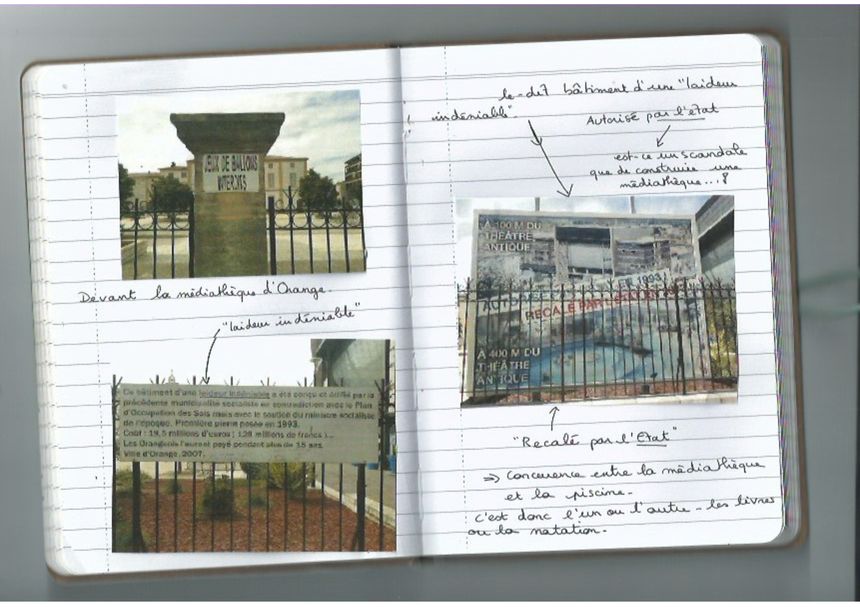 JEUX DE BALLONS
INTERDITS
Devant la médiathèque d'Orange.
"laideur indéniable"
Ce bâtiment d'une laideur indéniable a été conçu et édifié par la
précédente municipalité socialiste en contradiction avec le Plan
d'Occupation des Sols mais avec le soutien du ministre socialiste
de l'époque. Première pierre posée en 1993.
Coût : 19,5 millions d'euros ; 128 millions de francs !...
Les Orangeois l'auront payé pendant plus de 15 ans.
Ville d'Orange, 2007.
le-dit bâtiment d'une "laideur
indéniable"
Autorisé par l'état
est-ce un scandale
que de construire une
médiathèque...?
A 100 M DU
THÉÂTRE
ANTIQUE
1993
RECALÉ PAR L'ETAT
A 400 M DU
THÉÂTRE
ANTIQUE
"Recalé par l'Etat"
=> Concurence entre la médiathèque
et la piscine.
C'est donc l'un ou l'autre - les livres
ou la natation.